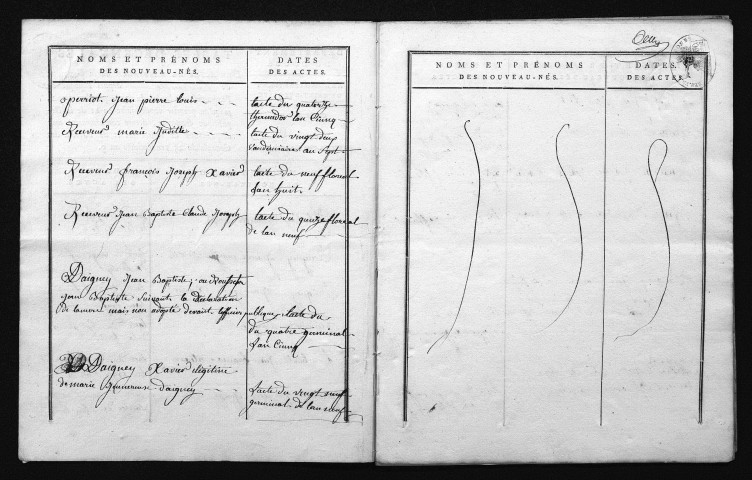 NOMS ET PRÉNOMS
DES NOUVEAU-NÉS.
DATES
DES ACTES.
perriot jean pierre louis
lacte du quatorze
thermidor lan Cinq
Receveur marie Juditte
lacte du vingt deux
vandemiaire an Sept
Receveur françois Joseph Xavier
lacte du neuf floreal
lan huit
Receveur Jean Baptiste Claude Joseph
lacte du quinze floreal
de lan neuf
Daigney Jean Baptiste, ou
jean Baptiste suivant la declaration
de lamere mais non adopté devant lofficier publique, lacte du
du quatre germinal
lan Cinq
Daigney Xavier
de marie genereuse daigney
Lacte du vingt neuf
germinal de lan neuf
NOMS ET PRÉNOMS
DES NOUVEAU-NÉS.
DATES.
DES ACTES.